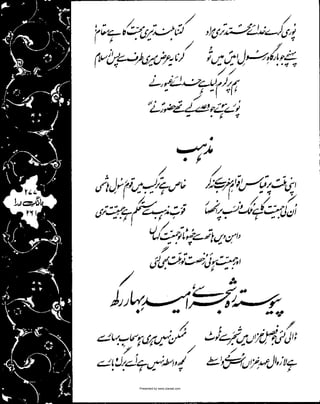 پوری کرے خدائے محمدؐ تری مراد
کتنا بلند تیری محبت کا ہے مقام!
پہنچے جو بارگاہِ رسولِ امیںؐ میں تو
کرنا یہ عرض میری طرف سے پس از سلام
ہم پر کرم کیا ہے خدائے غیور نے
پورے ہوئے جو وعدے کیے تھے حضورؐ نے
مذہب
اپنی ملت پر قیاس اقوامِ مغرب سے نہ کر
خاص ہے ترکیب میں قومِ رسولِ ہاشمیؐ
اُن کی جمعیت کا ہے ملک و نسب پر انحصار
قوتِ مذہب سے مستحکم ہے جمعیت تری
دامنِ دیں ہاتھ سے چھوٹا تو جمعیت کہاں
اور جمعیت ہوئی رخصت تو ملت بھی گئی
پیوستہ رہ شجر سے امیدِ بہار رکھ
ڈالی گئی جو فصلِ خزاں میں شجر سے ٹوٹ
ممکن نہیں ہری ہو سحابِ بہار سے
ہے لازوال عہدِ خزاں اس کے واسطے
کچھ واسطہ نہیں ہے اسے برگ و بار سے
بانگِ درا
۲۶۱